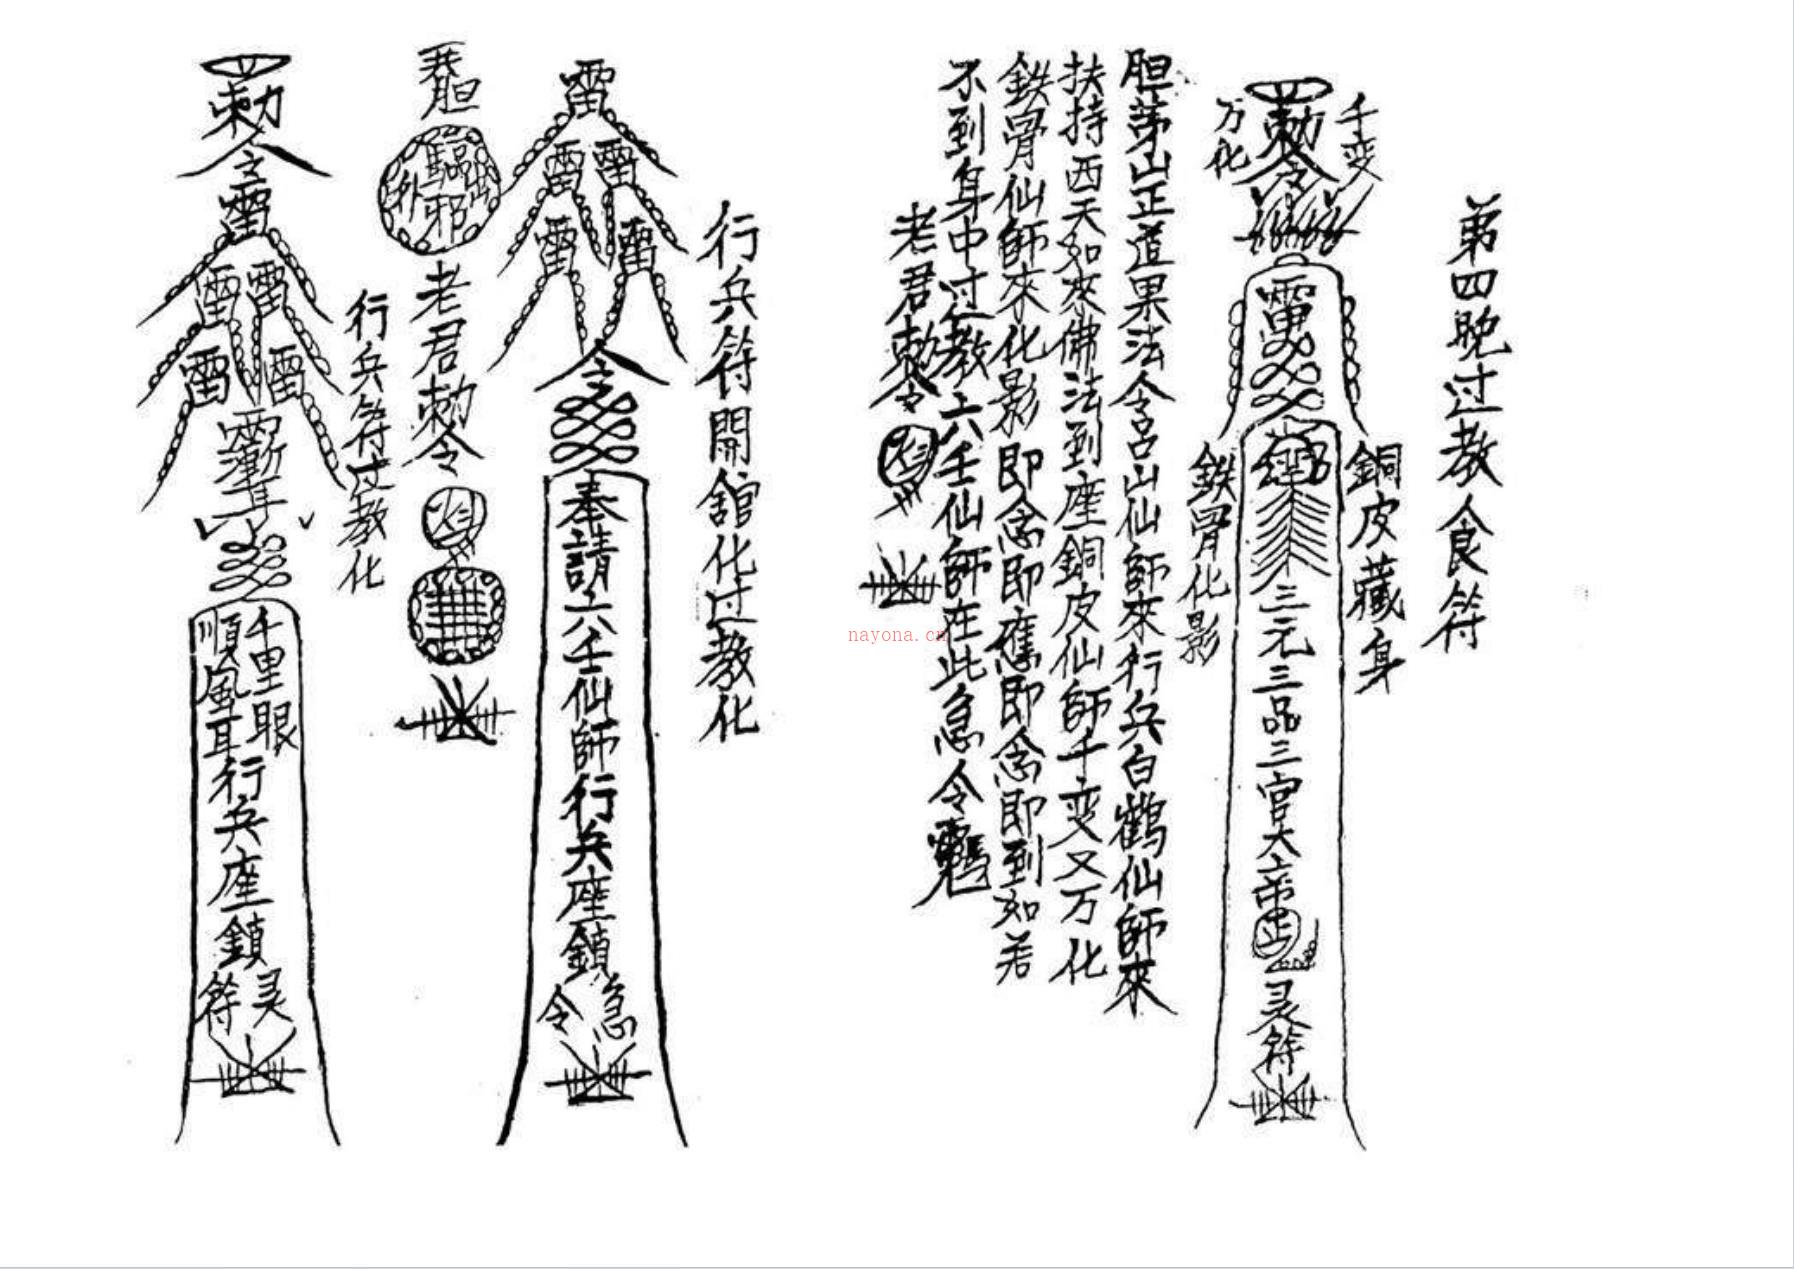 第四晚过教食符
千变
万化
勅令
銅皮藏身
鉄骨化影
雷
三元三品三官大帝
正
灵符
胆茅山正道果法令吕山仙師來行兵白鶴仙師來
扶持西天如來佛法到座銅皮仙師千变又万化
鉄骨仙師來化影即念即應即念即到如若
不到身中过教六壬仙師在此急令
老君勅令
行兵符開舘化过教化
雷
雷雷
雷雷
令
奉請六壬仙師行兵座鎮
急
令
胆
驅邪
老君勅令
行兵符过教化
勅令
雷
雷雷
雷雷
千里眼
順風耳
行兵座鎮
灵符
nayona.cn